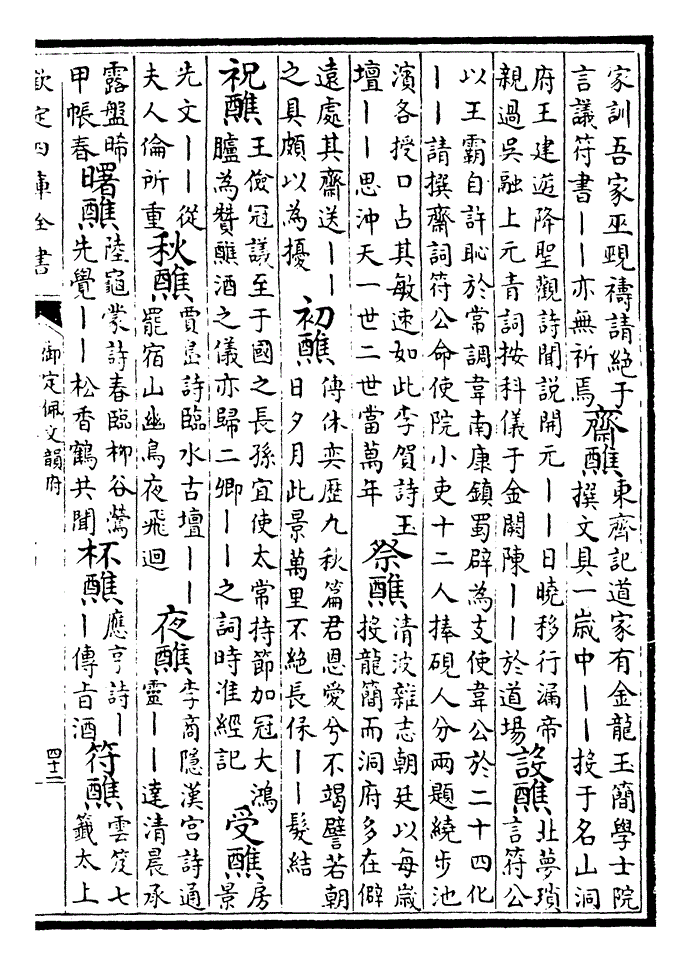 家訓吾家巫覡禱請絕于
言議符書——亦無祈焉
齋醮
東齋記道家有金龍玉簡學士院
撰文具一歲中——投于名山洞
府王建遊降聖觀詩聞說開元——日曉移行漏帝
親過吳融上元青詞按科儀于金闕陳——於道場
設醮
北夢瑣
言符公
以王霸自許恥於常調韋南康鎮蜀辟為支使韋公於二十四化
——請撰齋詞符公命使院小吏十二人捧硯人分兩題繞步池
濱各授口占其敏速如此李賀詩玉
壇——思沖天一世二世當萬年
祭醮
清波雜志朝廷以每歲
投龍簡而洞府多在僻
遠處其齋送——
之具頗以為擾
初醮
傅休奕歷九秋篇君恩愛兮不竭譬若朝
日夕月此景萬里不絕長保——髮結
祝醮
王儉冠議至于國之長孫宜使太常持節加冠大鴻
臚為贊醮酒之儀亦歸二卿——之詞時准經記
受醮
房
景
先文——從
夫人倫所重
秋醮
賈島詩臨水古壇——
罷宿山幽鳥夜飛迴
夜醮
李商隱漢宮詩通
靈——達清晨承
露盤晞
甲帳春
曙醮
陸龜蒙詩春臨柳谷鶯
先覺——松香鶴共聞
杯醮
應亨詩—
—傳旨酒
符醮
雲笈七
籤太上
欽定四庫全書
御定佩文韻府
四十二